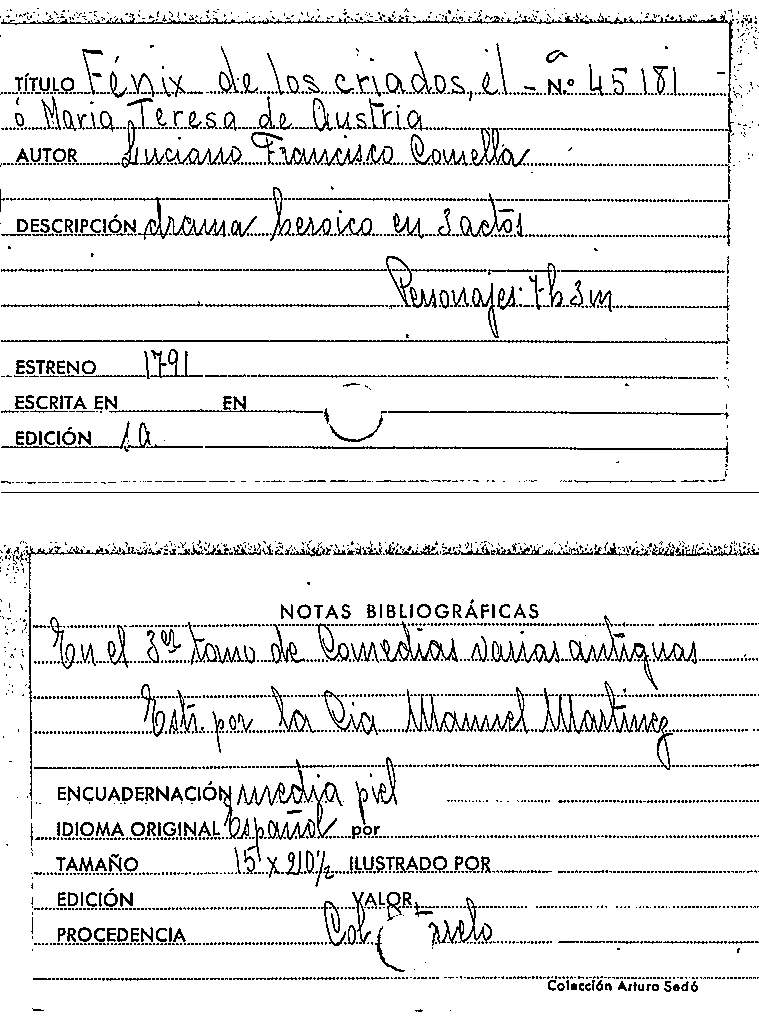 TÍTULO Fénix de los criados, el - N.º 45181
ó Maria Teresa de Austria
AUTOR Luciano Francisco Comella
DESCRIPCIÓN drama heroico en 3 actos
Personajes: 7 h 3 m
ESTRENO 1791
ESCRITA EN EN
EDICIÓN 1a
NOTAS BIBLIOGRÁFICAS
En el 3er tomo de Comedias varias antiguas
Estr. por la Cia Manuel Martinez
ENCUADERNACIÓN media piel
IDIOMA ORIGINAL Español por
TAMAÑO 15 x 210/2 ILUSTRADO POR
EDICIÓN VALOR
PROCEDENCIA Col
Colección Arturo Sedó